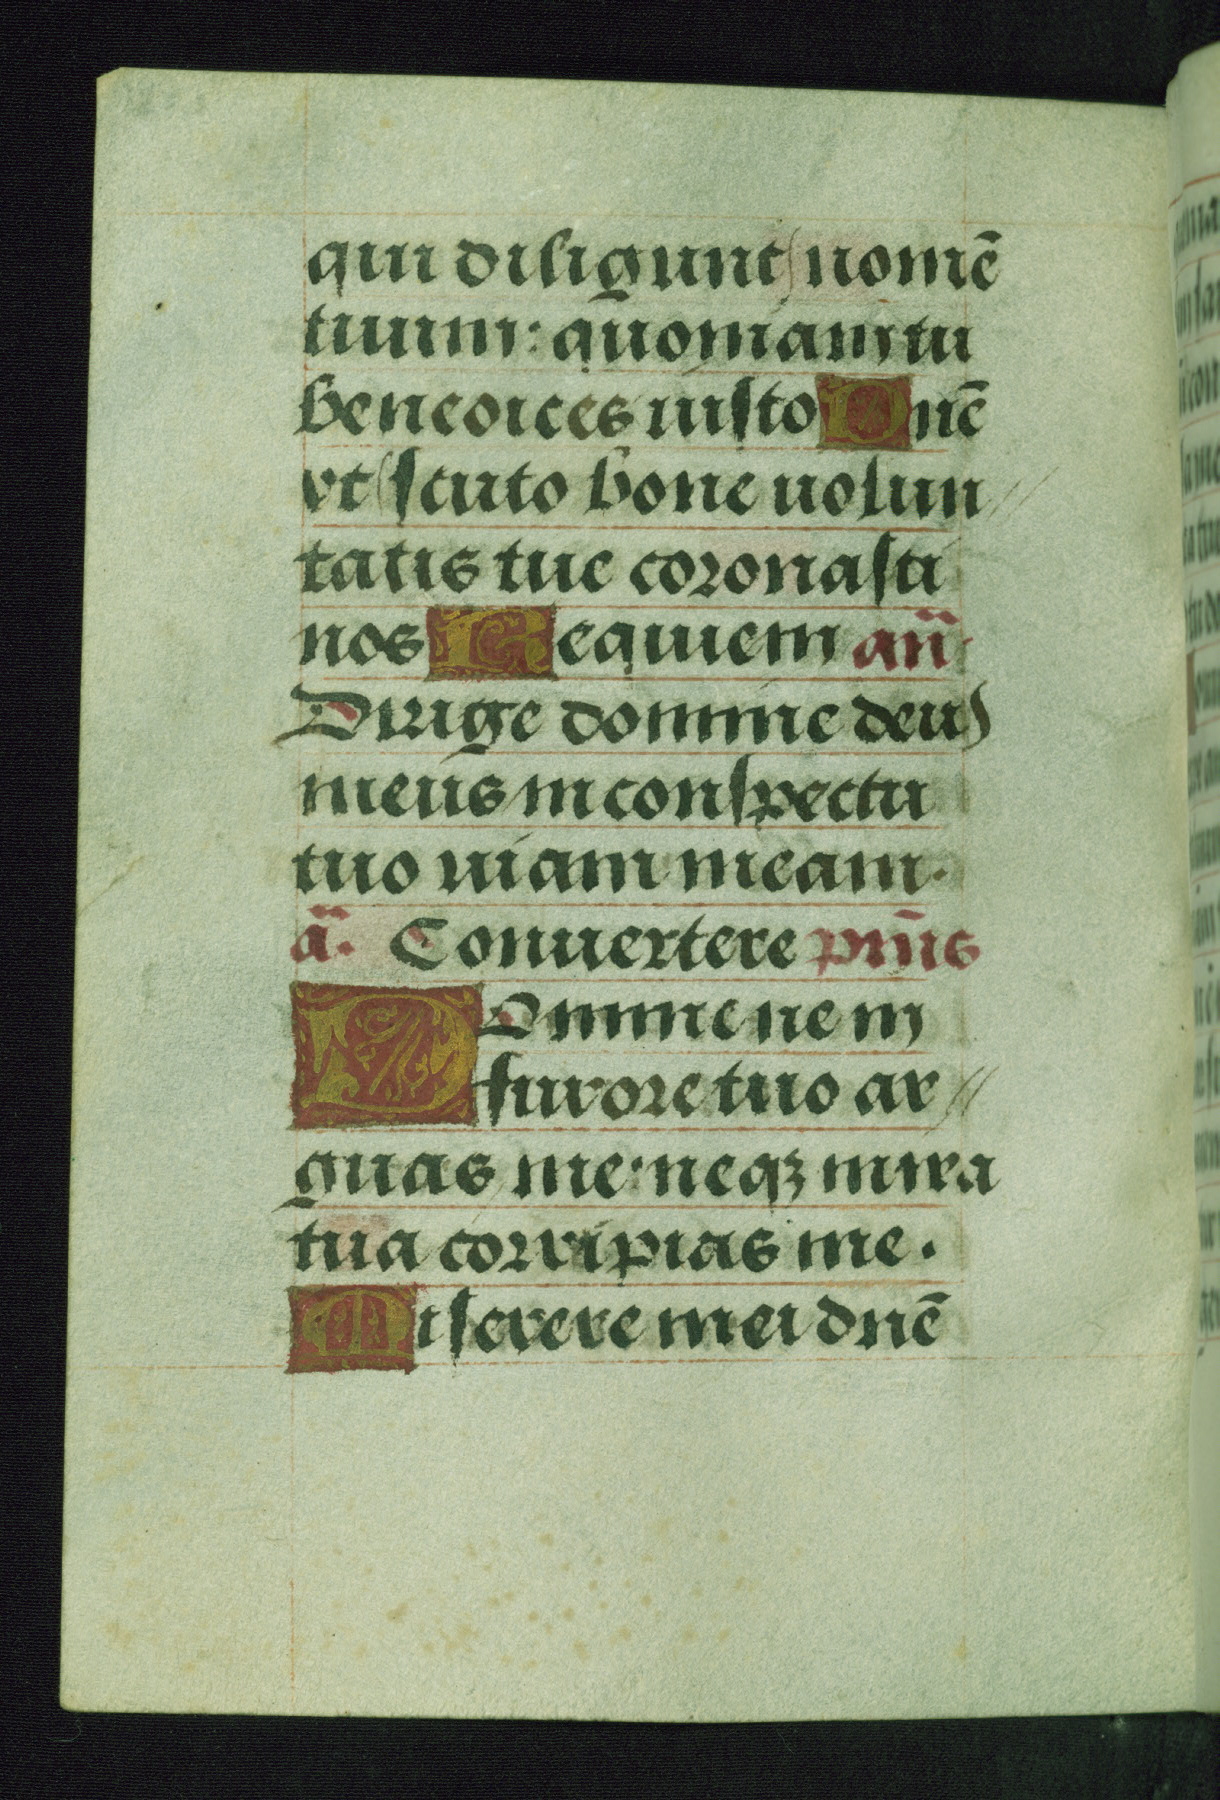 qui diligunt nomē
tuum: quoniam tu
benedices iusto Dnē
vt scuto bone uolun
tatis tue coronasti
nos Requiem an̄
Dirige domine deus
meus in conspectu
tuo uiam meam.
a. Conuertere pm̄s
Domine ne in
furore tuo ar
guas me: neqꝫ in ira
tua corripias me.
Miserere mei dnē